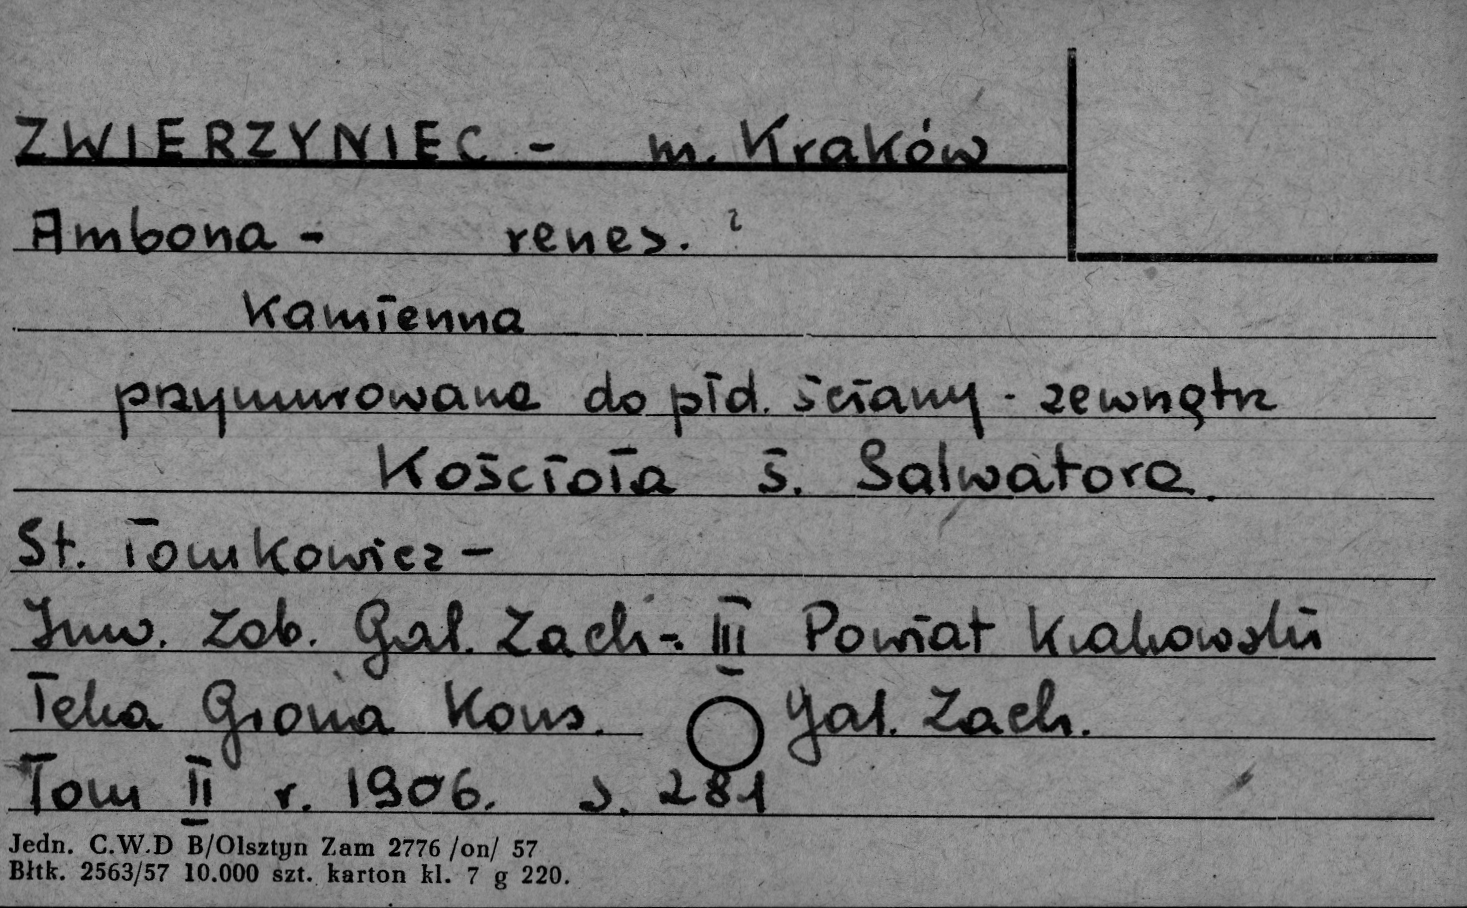 ZWIERZYNIEC - m. Kraków
Ambona - renes. ?
Kamienna
przymurowana do płd. ściany - zewnątrz
Kościoła ś. Salwatora.
St. Tomkowicz -
Inw. Zab. Gal. Zach - III Powiat Krakowski
Teka Grona Kons. Gal. Zach.
Tom II r. 1906. s. 281
Jedn. C.W.D B/Olsztyn Zam 2776 /on/ 57
Błtk. 2563/57 10.000 szt. karton kl. 7 g 220.